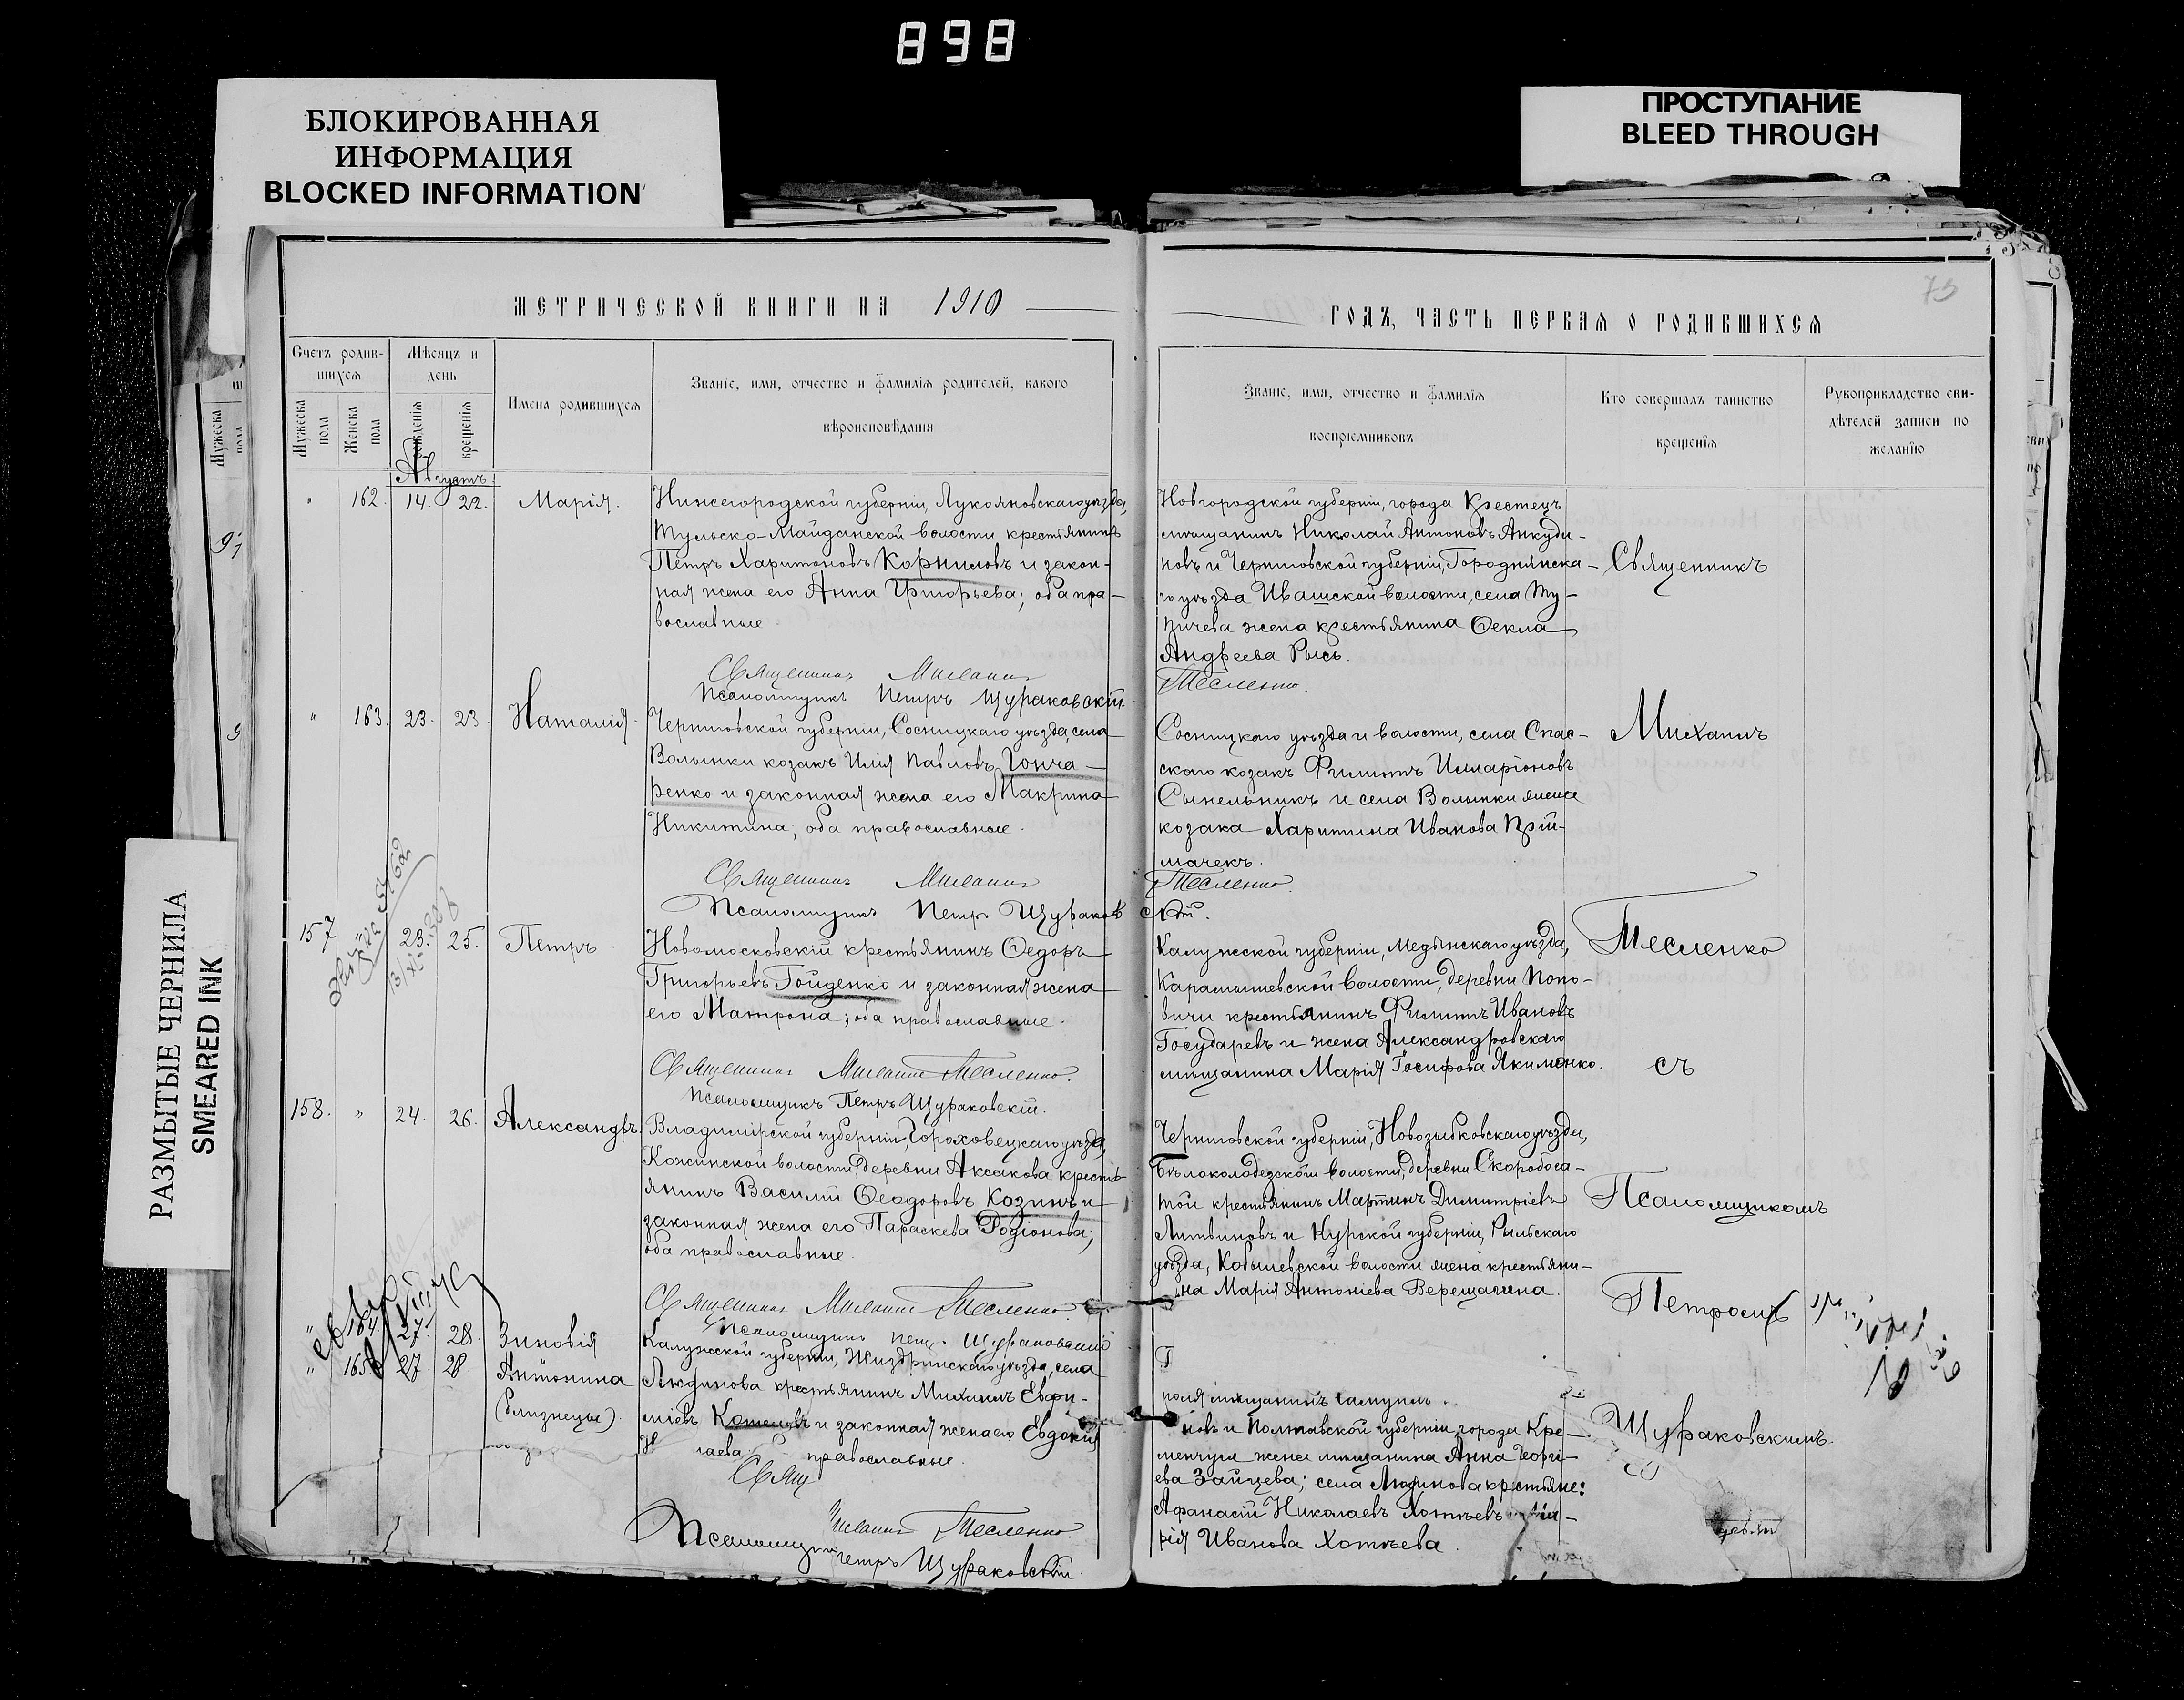 898
БЛОКИРОВАННАЯ
ИНФОРМАЦИЯ
BLOCKED INFORMATION
ПРОСТУПАНИЕ
BLEED THROUGH
РАЗМЫТЫЕ ЧЕРНИЛА
SMEARED INK
МЕТРИЧЕСКОЙ КНИГИ НА 1910
Счетъ родив-
шихся
Мѣсяцъ и
день
Мужеска
пола
Женска
пола
рожденія
крещенія
Имена родившихся
Званіе, имя, отчество и фамилія родителей, какого
вѣроисповѣданія
Августъ
" 162. 14. 22. Марія.
Нижегородской губерніи, Лукояновскаго уѣзда,
Тульско-Майданской волости крестьянинъ
Петръ Харитоновъ Корниловъ и закон-
ная жена его Анна Григорьева; оба пра-
вославные
Священникъ Михаилъ
Псаломщикъ Петръ Щураковскій.
" 163. 23. 23. Наталія.
Черниговской губерніи, Сосницкаго уѣзда, села
Волынки козакъ Илія Павловъ Гонча-
ренко и законная жена его Макрина
Никитина; оба православные.
Священникъ Михаилъ
Псаломщикъ Петръ Щураков
157 23. 25. Петръ.
Новомосковскій крестьянинъ Ѳедоръ
Григорьевъ Гойденко и законная жена
его Матрона; оба православные.
Священникъ Михаилъ Тесленко.
Псаломщикъ Петръ Щураковскій.
158. " 24. 26. Александръ.
Владимірской губерніи, Гороховецкаго уѣзда,
Кожинской волости, деревни Аксакова кресть-
янинъ Василій Ѳеодоровъ Козинъ и
законная жена его Параскева Родіонова;
оба православные.
Священникъ Михаилъ Тесленко.
Псаломщикъ Петръ Щураковскій
" 164. 27. 28. Зиновія
" 165. 27. 28. Антонина
(близнецы).
Калужской губерніи, Жиздринскаго уѣзда, села
Людинова крестьянинъ Михаилъ Евфи-
міевъ Котеловъ и законная жена его Евдокія
лаева православные.
Свящ
Михаилъ Тесленко.
Псаломщикъ Петръ Щураковскій.
75
ГОДЪ, ЧАСТЬ ПЕРВАЯ О РОДИВШИХСЯ
Званіе, имя, отчество и фамилія
воспріемниковъ
Кто совершалъ таинство
крещенія
Рукоприкладство сви-
дѣтелей записи по
желанію
Новгородской губерніи, города Крестецъ
мѣщанинъ Николай Антоновъ Анкуди-
новъ и Черниговской губерніи, Городнянска-
го уѣзда Ивашской волости, села Ту-
пичева жена крестьянина Ѳекла
Андреева Рысь.
Тесленко.
Сосницкаго уѣзда и волости, села Спас-
скаго козакъ Филиппъ Илларіоновъ
Сынельникъ и села Волынки жена
козака Харитина Иванова Прій-
мачекъ.
Тесленко.
скій.
Калужской губерніи, Медынскаго уѣзда,
Карамышевской волости, деревни Попо-
вичи крестьянинъ Филиппъ Ивановъ
Государевъ и жена Александровскаго
мѣщанина Марія Іосифова Якименко.
Черниговской губерніи, Новозыбковскаго уѣзда,
Бѣлоколодезской волости, деревни Скоробога-
той крестьянинъ Мартинъ Димитріевъ
Литвиновъ и Курской губерніи, Рыльскаго
уѣзда, Кобылевской волости жена крестьяни-
на Марія Антоніева Верещагина.
поля мѣщанинъ
новъ и Полтавской губерніи города Кре-
менчуга жена мѣщанина Анна Георгі-
ева Зайцева; села Людинова крестьяне:
Афанасій Николаевъ Хотѣевъ
рія Иванова Хотѣева.
Священникъ
Михаилъ
Тесленко
съ
Псаломщикомъ
Петромъ
Щураковскимъ.